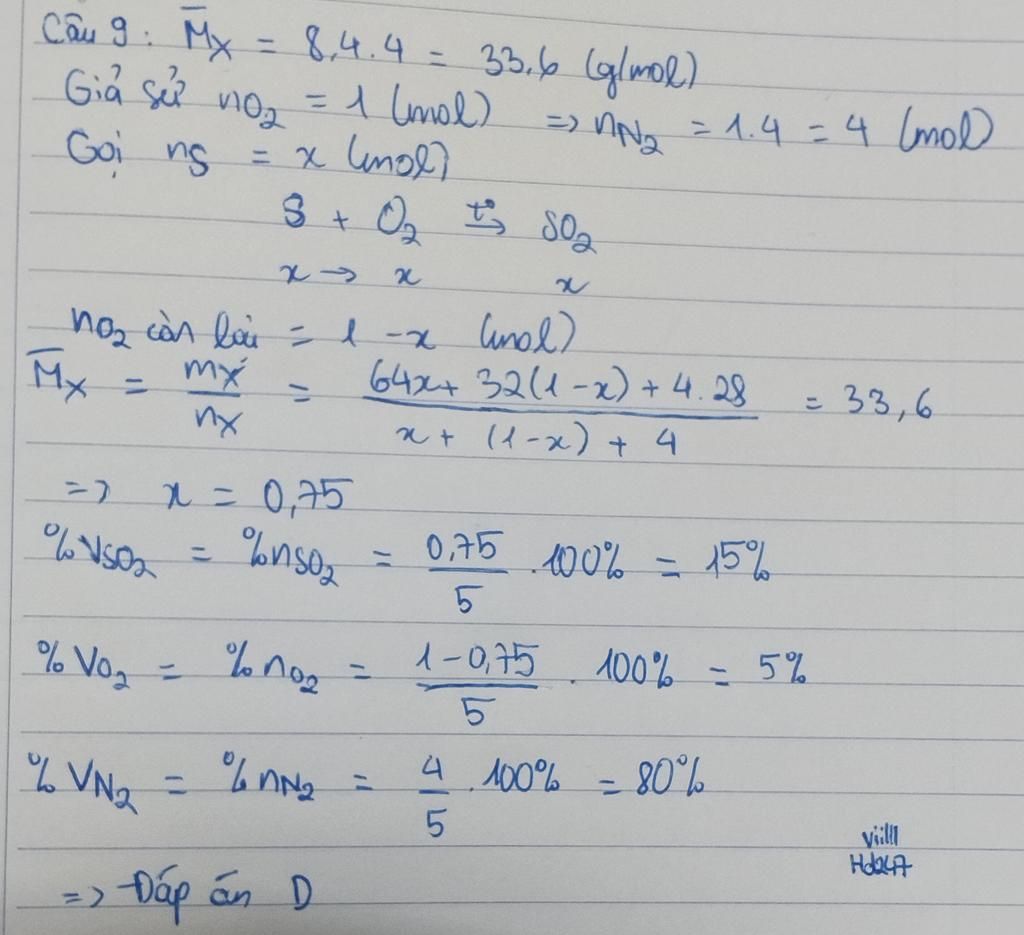 Câu 9: M̅x = 8,4.4 = 33,6 (g/mol)
Giả sử nO₂ = 1 (mol) => nN₂ = 1.4 = 4 (mol)
Gọi nS = x (mol)
S + O₂ t°→ SO₂
x → x x
nO₂ còn lại = 1 - x (mol)
M̅x = mx/nx = (64x + 32(1-x) + 4.28)/(x + (1-x) + 4) = 33,6
=> x = 0,75
%VSO₂ = %nSO₂ = 0,75/5 .100% = 15%
%VO₂ = %nO₂ = (1-0,75)/5 . 100% = 5%
%VN₂ = %nN₂ = 4/5 .100% = 80%
=> Đáp án D